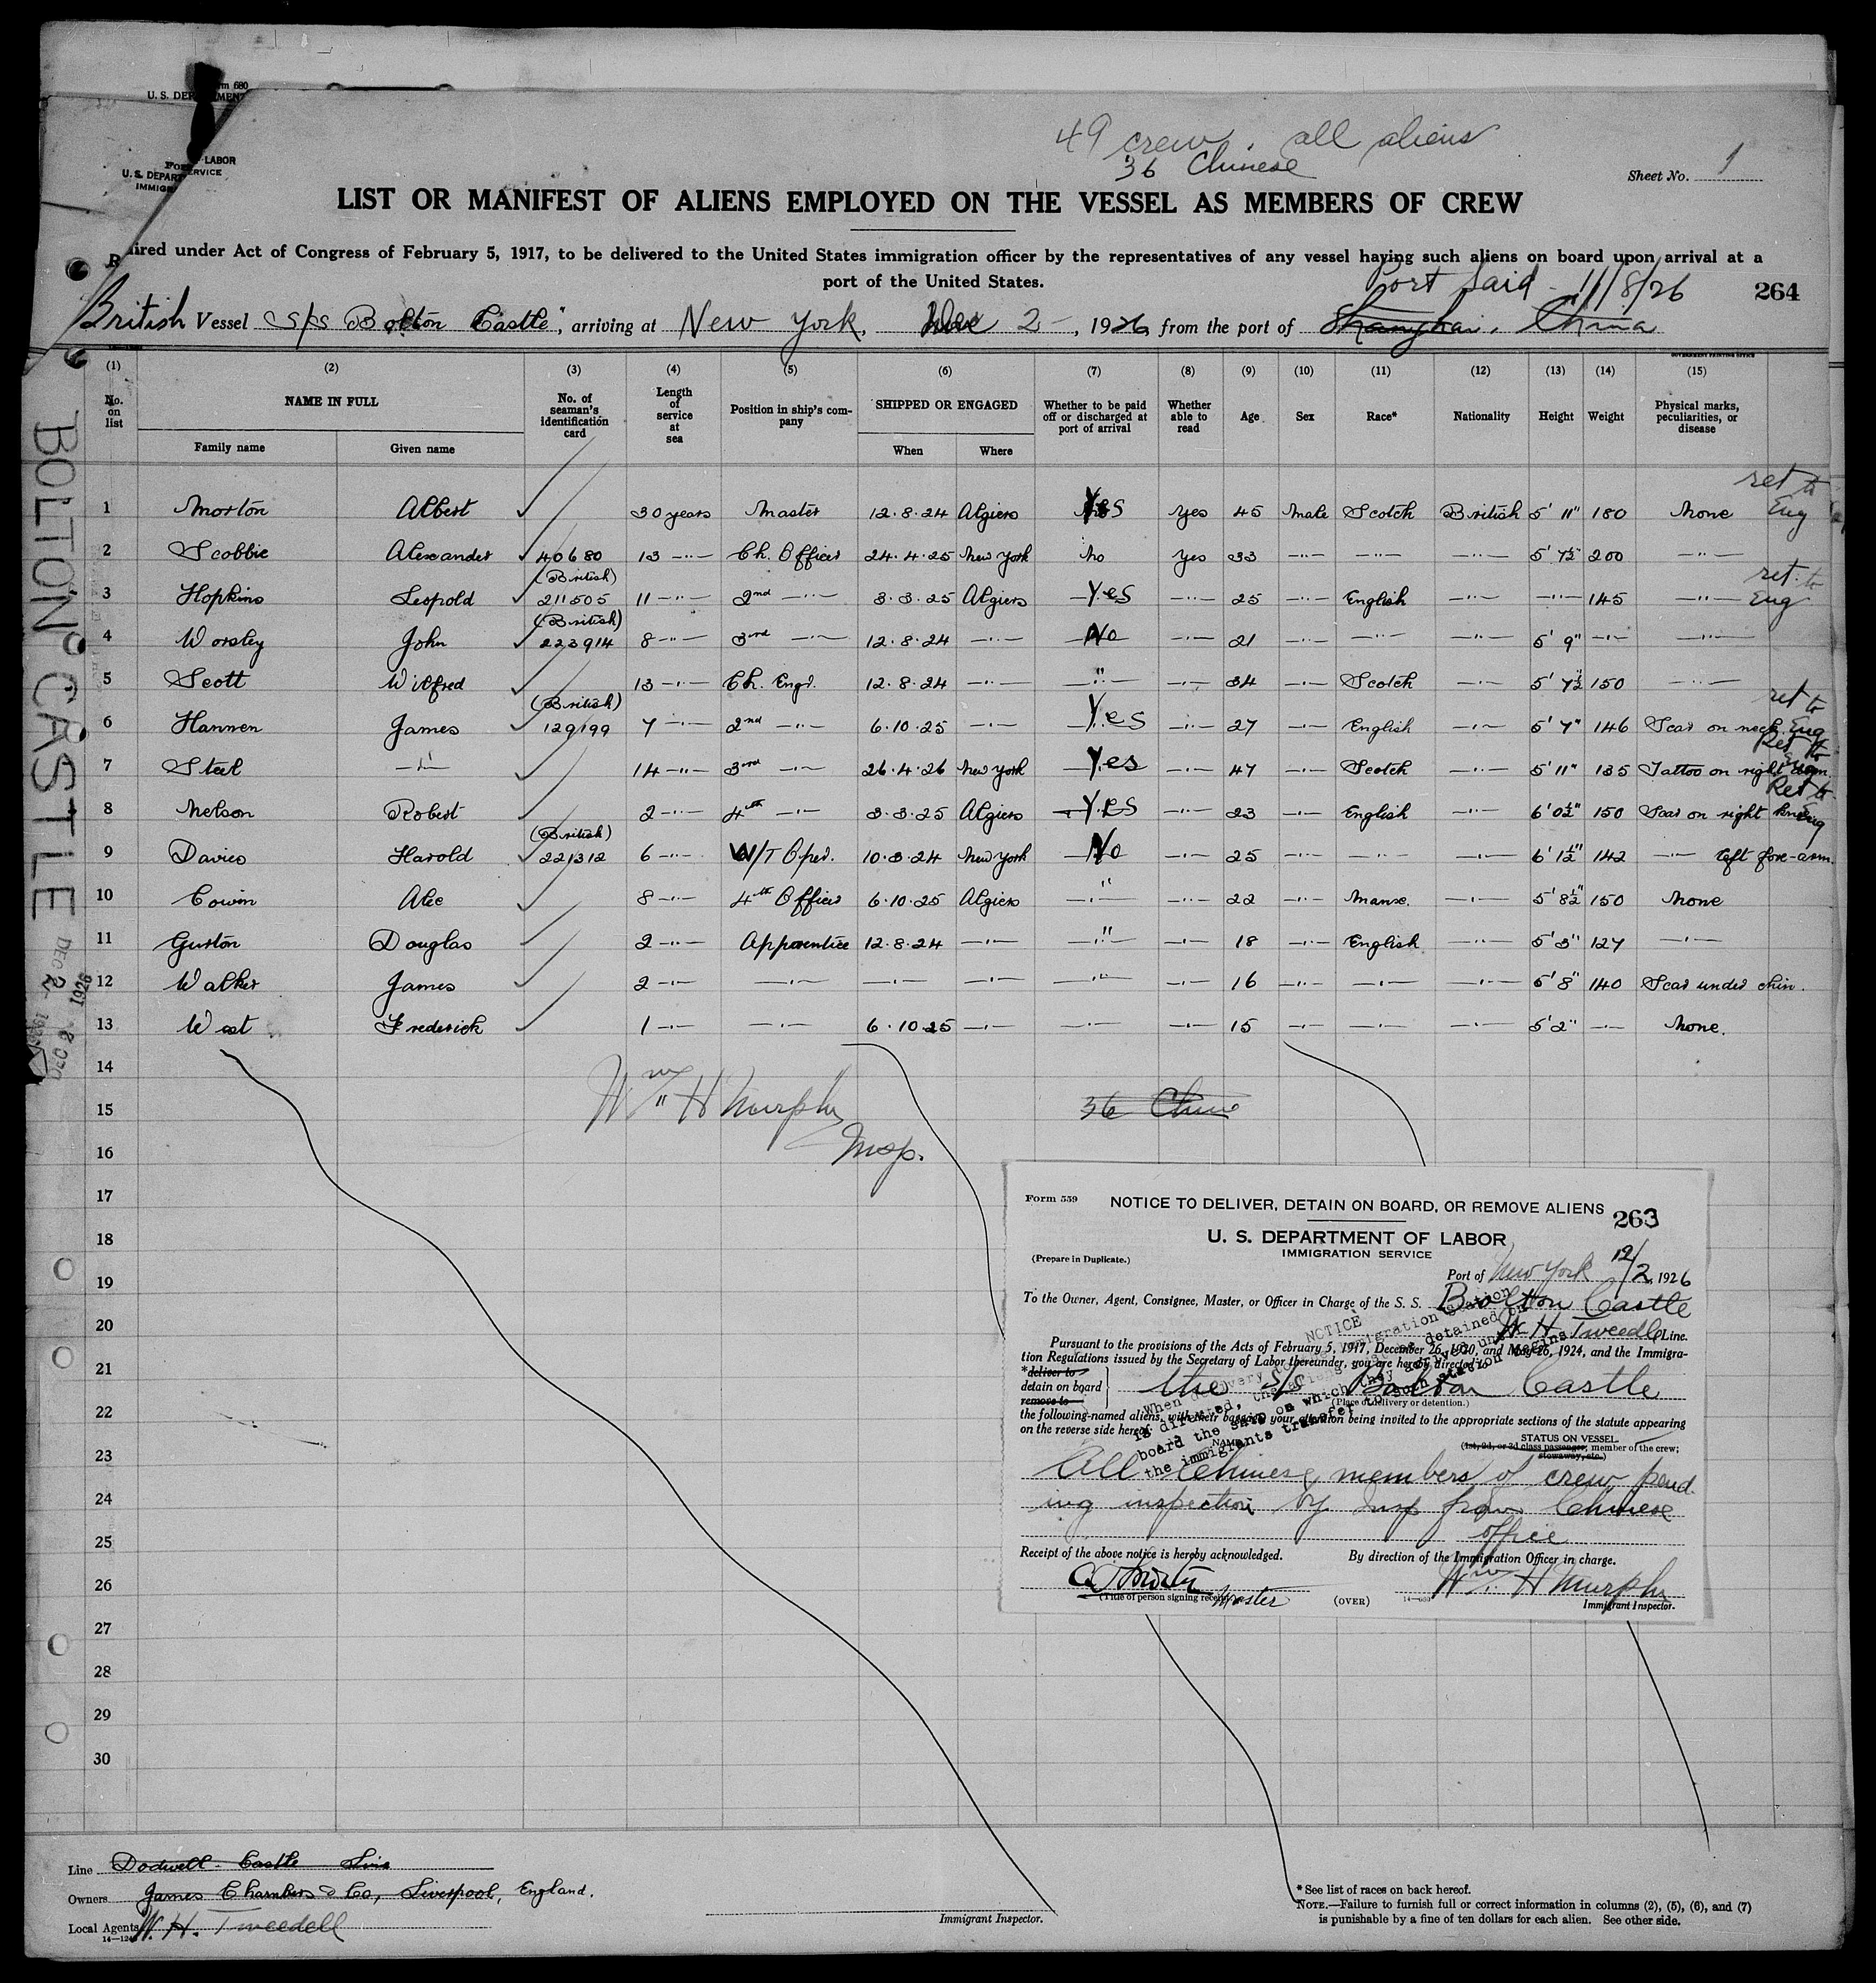 U. S. DEPARTMENT
LABOR
U. S. DEPART
SERVICE
IMMIG
49 crew. all aliens
36 Chinese
Sheet No. 1
LIST OR MANIFEST OF ALIENS EMPLOYED ON THE VESSEL AS MEMBERS OF CREW
ired under Act of Congress of February 5, 1917, to be delivered to the United States immigration officer by the representatives of any vessel having such aliens on board upon arrival at a
port of the United States.
Port Said - 11/8/26
264
British Vessel S/S Bolton Castle", arriving at New York, Dec 2, 1926, from the port of Shanghai, China
GOVERNMENT PRINTING OFFICE
(1) (2) (3) (4) (5) (6) (7) (8) (9) (10) (11) (12) (13) (14) (15)
No. on list NAME IN FULL No. of seaman's identification card Length of service at sea Position in ship's company SHIPPED OR ENGAGED Whether to be paid off or discharged at port of arrival Whether able to read Age Sex Race* Nationality Height Weight Physical marks, peculiarities, or disease
Family name Given name When Where
ret to
1 Morton Albert 30 years Master 12.8.24 Algiers Yes Yes 45 Male Scotch British 5' 11" 180 None Eng
2 Scobbie Alexander 40680 13 -"- Ch. Officer 24.4.25 New York No Yes 33 -"- -"- -"- 5' 7½" 200 -"-
(British) ret. to
3 Hopkins Leopold 211505 11 -"- 2nd -"- 3.3.25 Algiers Yes -"- 25 -"- English -"- -"- 145 -"- Eng
(British)
4 Worsley John 223914 8 -"- 3rd -"- 12.8.24 -"- No -"- 21 -"- -"- -"- 5' 9" -"- -"-
5 Scott Wilfred 13 -"- Ch. Engr. 12.8.24 -"- " -"- 34 -"- Scotch -"- 5' 7½ 150 -"-
(British) ret to
6 Hannen James 129199 7 -"- 2nd -"- 6.10.25 -"- Yes -"- 27 -"- English -"- 5' 7" 146 Scar on neck. Eng
Ret to
7 Steel -"- 14 -"- 3rd -"- 26.4.26 New York Yes -"- 47 -"- Scotch -"- 5' 11" 135 Tattoo on right arm. Eng
Ret to
8 Nelson Robert 2 -"- 4th -"- 3.3.25 Algiers Yes -"- 23 -"- English -"- 6' 0½" 150 Scar on right knee Eng
(British)
9 Davies Harold 221312 6 -"- W/T Oper. 10.3.24 New York No -"- 25 -"- -"- -"- 6' 1½" 142 -"- left fore-arm.
10 Cowin Alec 8 -"- 4th Officer 6.10.25 Algiers " -"- 22 -"- Manx. -"- 5' 8½" 150 None
11 Guston Douglas 2 -"- Apprentice 12.8.24 -"- " -"- 18 -"- English -"- 5' 3" 127 -"-
12 Walker James 2 -"- -"- -"- -"- -"- -"- 16 -"- -"- -"- 5' 8" 140 Scar under chin.
13 West Frederick 1 -"- -"- 6.10.25 -"- -"- -"- 15 -"- -"- -"- 5' 2" -"- None.
14
15 Wm H Murphy 36 Chine
16 Insp.
17
18
19
20
21
22
23
24
25
26
27
28
29
30
BOLTON CASTLE
DEC 2 1926
Form 559
NOTICE TO DELIVER, DETAIN ON BOARD, OR REMOVE ALIENS
263
U. S. DEPARTMENT OF LABOR
IMMIGRATION SERVICE
(Prepare in Duplicate.)
Port of New York 12/2, 1926
To the Owner, Agent, Consignee, Master, or Officer in Charge of the S. S. Bolton Castle
W H Tweedle Line.
Pursuant to the provisions of the Acts of February 5, 1917, December 26, 1920, and May 26, 1924, and the Immigra-
tion Regulations issued by the Secretary of Labor thereunder, you are hereby directed to
*deliver to
detain on board
remove to
the S/S Bolton Castle
(Place of delivery or detention.)
the following-named aliens, with their baggage, your attention being invited to the appropriate sections of the statute appearing
on the reverse side hereof:
NAME
STATUS ON VESSEL
(1st, 2d, or 3d class passenger, member of the crew;
stowaway, etc.)
NOTICE
When delivery to immigration station
is directed, the aliens must be detained on
board the ship on which they arrived until
the immigrants transfer to such station begins
All Chinese members of crew pend-
ing inspection by Insp from Chinese
office
Receipt of the above notice is hereby acknowledged.
By direction of the Immigration Officer in charge.
Wm H Murphy
(Title of person signing receipt) Master
(OVER)
Immigrant Inspector.
Line Dodwell - Castle Line
Owners James Chambers & Co, Liverpool, England.
Local Agents W. H. Tweedell
Immigrant Inspector.
* See list of races on back hereof.
NOTE.—Failure to furnish full or correct information in columns (2), (5), (6), and (7)
is punishable by a fine of ten dollars for each alien. See other side.